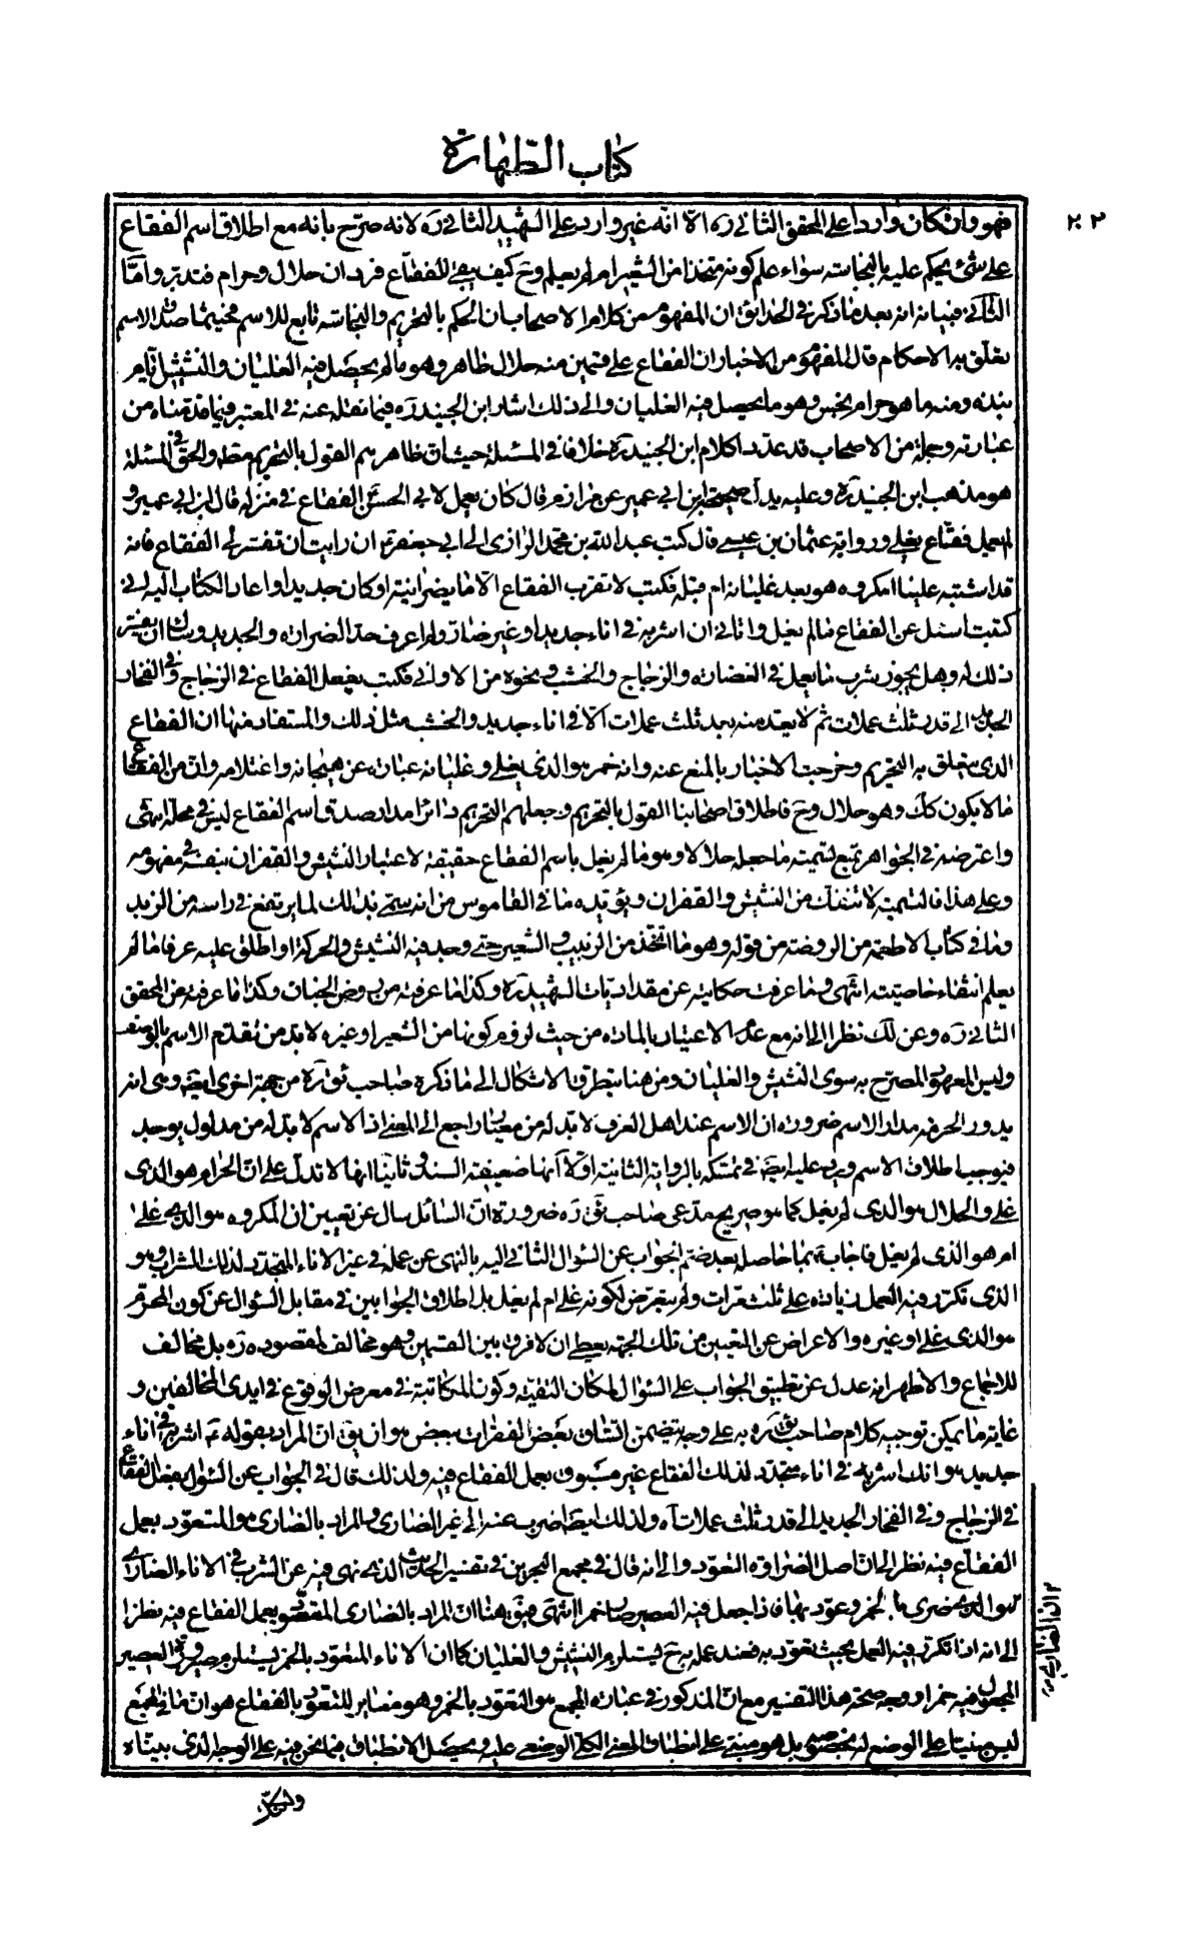 كتاب الطهارة
٢٠٢
فهو وان كان واردا على المحقق الثاني ره الا انه غير وارد على الشهيد الثاني ره لانه صرح بانه مع اطلاق اسم الفقاع
على شئ يحكم عليه بالنجاسة سواء علم كونه متخذا من الشعير ام لم يعلم وح كيف يبقى للفقاع فردان حلال وحرام فتدبر وامّا
الثاني فبيانه انه بعد ما ذكر في الحدائق ان المفهوم من كلام الاصحاب ان الحكم بالتحريم والنجاسة تابع للاسم فحيثما صدق الاسم
تعلق به الاحكام قال المفهوم من الاخبار ان الفقاع على قسمين منه حلال طاهر وهو ما لم يحصل فيه الغليان والنشيش
ومنه ما هو حرام نجس وهو ما يحصل فيه الغليان والى ذلك اشار ابن الجنيد ره فيما نقله عنه في المعتبر فيما قدمناه من
عبارته وجملة من الاصحاب قد عدوا كلام ابن الجنيد ره خلافا في المسئلة حيث ان ظاهرهم القول بالتحريم مطه والحق في المسئلة
هو مذهب ابن الجنيد ره وعليه يدل صحيحة ابن ابي عمير عن مرازم قال كان يعمل لابي الحسن الفقاع في منزله قال ابن ابي عمير و
لم يعمل فقاع يغلي ورواية عثمان بن عيسى قال كتب عبد الله بن محمد الرازى الى ابي جعفر ع ان رايت ان تفسر لي الفقاع فانه
قد اشتبه علينا امكروه هو بعد غليانه ام قبله فكتب لا تقرب الفقاع الا ما يضر انيته او كان جديدا واعاد الكتاب اليه اني
كتبت اسئل عن الفقاع ما لم يغل واتاني ان اشربه في اناء جديد او غير ضار ولم اعرف حد الضراوة والجديد وسئل ان يفسر
ذلك له وهل يجوز شرب ما يعمل في الغضارة والزجاج والخشب ونحوه من الاواني فكتب يفعل الفقاع في الزجاج وفي الفخار
الجديد الى قدر ثلث عملات ثم لا يعد منه بعد ثلث عملات الا في اناء جديد والخشب مثل ذلك والمستفاد منها ان الفقاع
الذى يتعلق به التحريم وخرجت الاخبار بالمنع عنه وانه خمر هو الذى يغلي وغليانه عبارة عن هيجانه واغتلامه وان من الفقاع
ما لا يكون كك وهو حلال وح فاطلاق اصحابنا القول بالتحريم وجعلهم التحريم دائرا مدار صدق اسم الفقاع ليس في محله انتهى
واعترضه في الجواهر بمنع تسمية ما جعله حلالا وهو ما لم يغل باسم الفقاع حقيقة لاعتبار النشيش والقفزان بنفسه في مفهومه
وعلى هذا فالتسمية لا تنفك من النشيش والقفزان ويؤيده ما في القاموس من انه سمّى بذلك لما يرتفع في راسه من الزبد
وما في كتاب الاطعمة من الروضة من قوله وهو ما اتخذ من الزبيب والشعير حتى وجد فيه النشيش والحركة او اطلق عليه عرفا ما لم
يعلم انتفاء خاصيته انتهى وما عرفت حكايته عن مقداديات الشهيد ره وكذا ما عرفته من بعض الجنان وكذا ما عرفته من المحقق
الثاني ره وعن لك نظرا الى انه مع عدم الاعتبار بالمادة من حيث لزوم كونها من الشعير او غيره لا بد من تقدم الاسم بالوصف
وليس المعهود المصرح به سوى النشيش والغليان ومن هنا يتطرق الاشكال الى ما ذكره صاحب ئق ره من جهة اخرى ايضا وهى انه
يدور الحرمة مدار الاسم ضرورة ان الاسم عند اهل العرف لا بد له من معيار راجع الى المعنى اذ الاسم لا بد له من مدلول يوجد
فيوجب اطلاق الاسم ويرد عليه ايضا في تمسكه بالرواية الثانية اولا انها ضعيفة السند وثانيا انها لا تدل على ان الحرام هو الذى
غلى والحلال هو الذى لم يغل كما هو صريح مدعى صاحب ئق ره ضرورة ان السائل سال عن تعيين ان المكروه هو الذى غلى
ام هو الذى لم يغل فاجاب ع بما حاصله بعد ضم الجواب عن السؤال الثاني اليه بالنهى عن عمله في غير الاناء المتجدد لذلك الشراب وهو
الذى تكرر فيه العمل زيادة على ثلث مرات ولم يتعرض لكونه غلى ام لم يغل بل اطلاق الجوابين في مقابل السؤال عن كون المحرم
هو الذى غلى او غيره والاعراض عن التعيين من تلك الجهة يعطى ان لا فرق بين القسمين وهو مخالف لمقصوده ره بل مخالف
للاجماع والاظهر انه عدل عن تطبيق الجواب على السؤال لمكان التقية وكون المكاتبة في معرض الوقوع في ايدى المخالفين و
غاية ما يمكن توجيه كلام صاحب ئق ره به على وجه يتضمن التئام بعض الفقرات ببعض هو ان يق ان المراد بقوله ع اشربه في اناء
جديد هو انك اشربه في اناء متجدد لذلك الفقاع غير مسبوق بعمل الفقاع فيه ولذلك قال في الجواب عن السؤال يفعل الفقاع
في الزجاج وفي الفخار الجديد الى قدر ثلث عملات آه ولذلك ايضا ضرب عنه الى غير الضارى والمراد بالضارى هو المتعود بعمل
الفقاع فيه نظرا الى ان اصل الضراوة التعود والى انه قال في مجمع البحرين في تفسير الحديث الذى نهى فيه عن الشرب في الاناء الضارى
هو الذى ضرى بالخمر وعود بها فاذا جعل فيه العصير صار خمرا انتهى فيق هنا ان المراد بالضارى المتعود بعمل الفقاع فيه نظرا
الى انه اذا تكرر فيه العمل بحيث تعود به فعند عمله به ح يستلزم النشيش والغليان كما ان الاناء المتعود بالخمر يستلزم صيرورة العصير
المجعول فيه خمرا ووجه صحة هذا التفسير مع ان المذكور في عبارة المجمع هو التعود بالخمر وهو مغاير للتعود بالفقاع هو ان ما في المجمع
ليس مبنيا على الوضع له بخصوصه بل هو مبنى على انطباق المعنى الكلى الوضعى عليه ويحصل الانطباق فيما نحن فيه على الوجه الذى بيناه